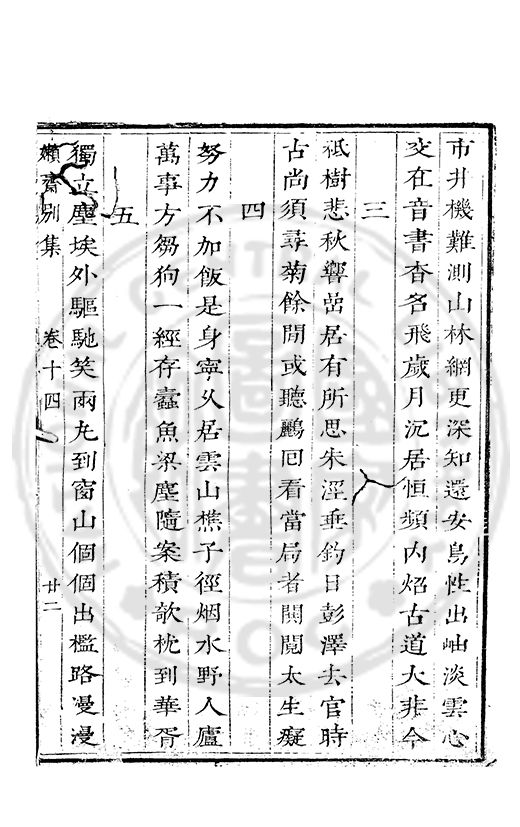 市井機難測山林網更深知還安鳥性出岫淡雲心
交在音書杳名飛歲月沉居恒頻內炤古道大非今
三
秪樹悲秋響喦居有所思朱涇垂釣日彭澤去官時
古尚須尋菊餘閒或聽鸝囘看當局者閱太生癡
四
努力不加飯是身寧乆居雲山樵子徑烟水野人廬
萬事方芻狗一經存蠹魚梁塵隨案積欹枕到華胥
五
獨立塵埃外驅馳笑兩丸到窗山個個出檻路漫漫
嬾齋別集 卷十四 廿二